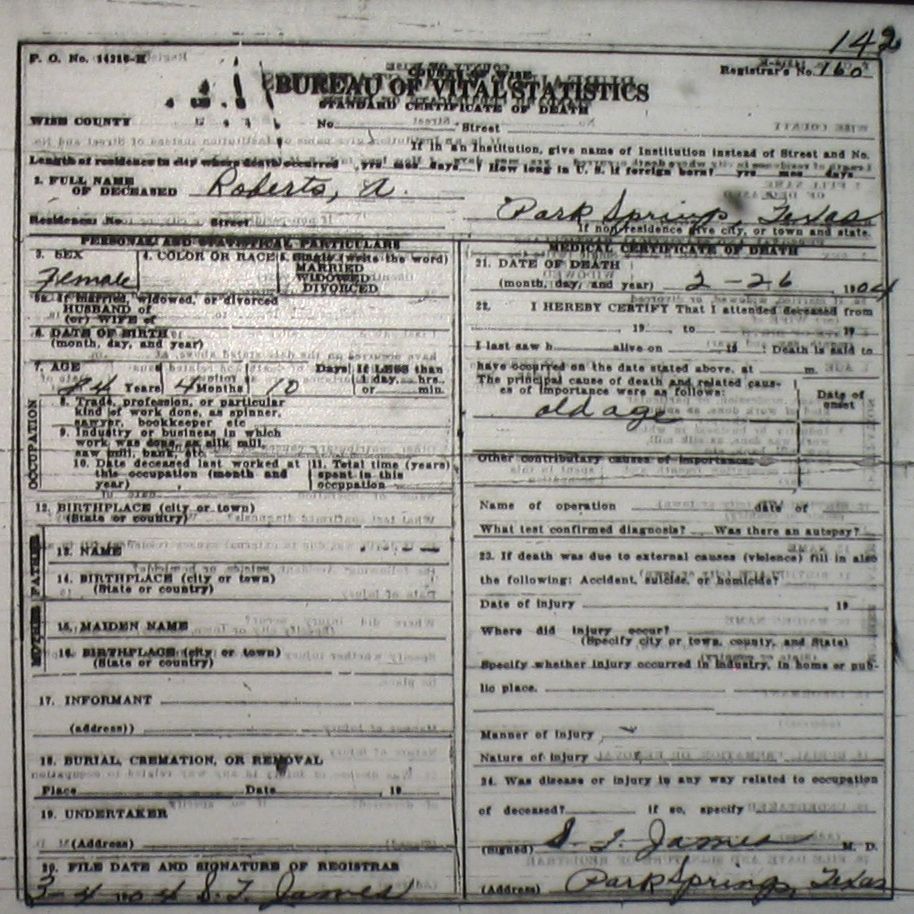 142
F. O. No. 14216-H
Registrar's No. 160
BUREAU OF VITAL STATISTICS
STANDARD CERTIFICATE OF DEATH
WISE COUNTY No. Street
If in an Institution, give name of Institution instead of Street and No.
Length of residence in city where death occurred yrs mos days How long in U. S. if foreign born? yrs mos days
2. FULL NAME OF DECEASED Roberts, A.
Residence No. Street
Park Springs, Texas
If non residence give city, or town and state.
PERSONAL AND STATISTICAL PARTICULARS
3. SEX Female
4. COLOR OR RACE
5. Single (write the word)
MARRIED
WIDOWED
DIVORCED
5a. If married, widowed, or divorced
HUSBAND of
(or) WIFE of
6. DATE OF BIRTH
(month, day, and year)
7. AGE Years 4 Months 10 Days If LESS than
1 day hrs.
or min.
OCCUPATION
8. Trade, profession, or particular
kind of work done, as spinner,
sawyer, bookkeeper etc
9. Industry or business in which
work was done, as silk mill,
saw mill, bank, etc.
10. Date deceased last worked at
this occupation (month and
year)
11. Total time (years)
spent in this
occupation
12. BIRTHPLACE (city or town)
(State or country)
FATHER
13. NAME
14. BIRTHPLACE (city or town)
(State or country)
MOTHER
15. MAIDEN NAME
16. BIRTHPLACE (city or town)
(State or country)
17. INFORMANT
(address))
18. BURIAL, CREMATION, OR REMOVAL
Place Date 19
19. UNDERTAKER
(Address)
20. FILE DATE AND SIGNATURE OF REGISTRAR
3-4 190 4 S. T. James
MEDICAL CERTIFICATE OF DEATH
21. DATE OF DEATH
(month, day, and year) 2-26 1904
22. I HEREBY CERTIFY That I attended deceased from
19 to 19
I last saw h alive on 19 ; Death is said to
have occurred on the date stated above, at m.
The principal cause of death and related causes
of importance were as follows:
Date of
onset
old age
Other contributary causes of importance
Name of operation date of
What test confirmed diagnosis? Was there an autopsy?
23. If death was due to external causes (violence) fill in also
the following: Accident, suicide, or homicide?
Date of injury 19
Where did injury occur?
(Specify city or town, county, and State)
Specify whether injury occurred in Industry, in home or pub-
lic place.
Manner of injury
Nature of injury
24. Was disease or injury in any way related to occupation
of deceased? if so, specify
(Signed) S. T. James M. D.
(Address) Park Springs, Texas